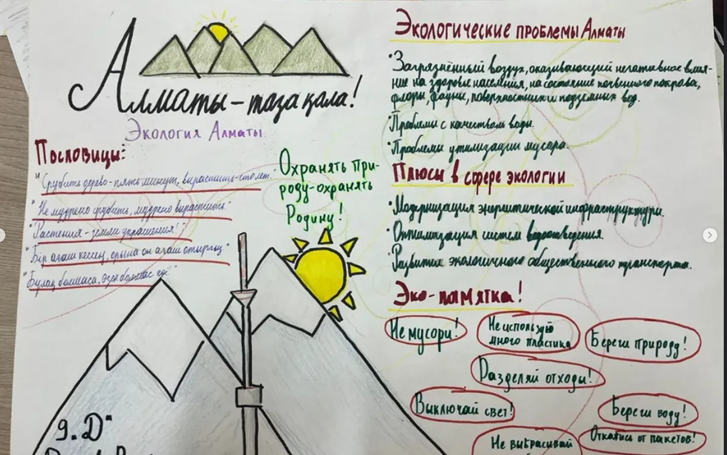 Алматы – таза қала!
Экология Алматы
Пословицы:
"Срубить дерево - пять минут, вырастить - сто лет.
"Не мудрено срубить, мудрено вырастить"
"Растения - земли украшения!"
"Бір ағаш кессең, орнына он ағаш отырғыз"
"Бұлақ болмаса, өзен болмас еді"
Охранять при-
роду - охранять
Родину!
9 "D"
Экологические проблемы Алматы
• Загрязнённый воздух, оказывающий негативное влия-
ние на здоровье населения, на состояние почвенного покрова,
флоры, фауны, поверхностных и подземных вод.
• Проблемы с качеством воды.
• Проблемы утилизации мусора.
Плюсы в сфере экологии
• Модернизация энергитической инфраструктуры.
• Оптимизация систем водоотведения.
• Развитие экологичного общественного транспорта.
Эко-памятка!
Не мусори!
Не использую
много пластика
Береги природу!
Разделяй отходы!
Выключай свет!
Береги воду!
Не выбрасывай
Откажись от пакетов!